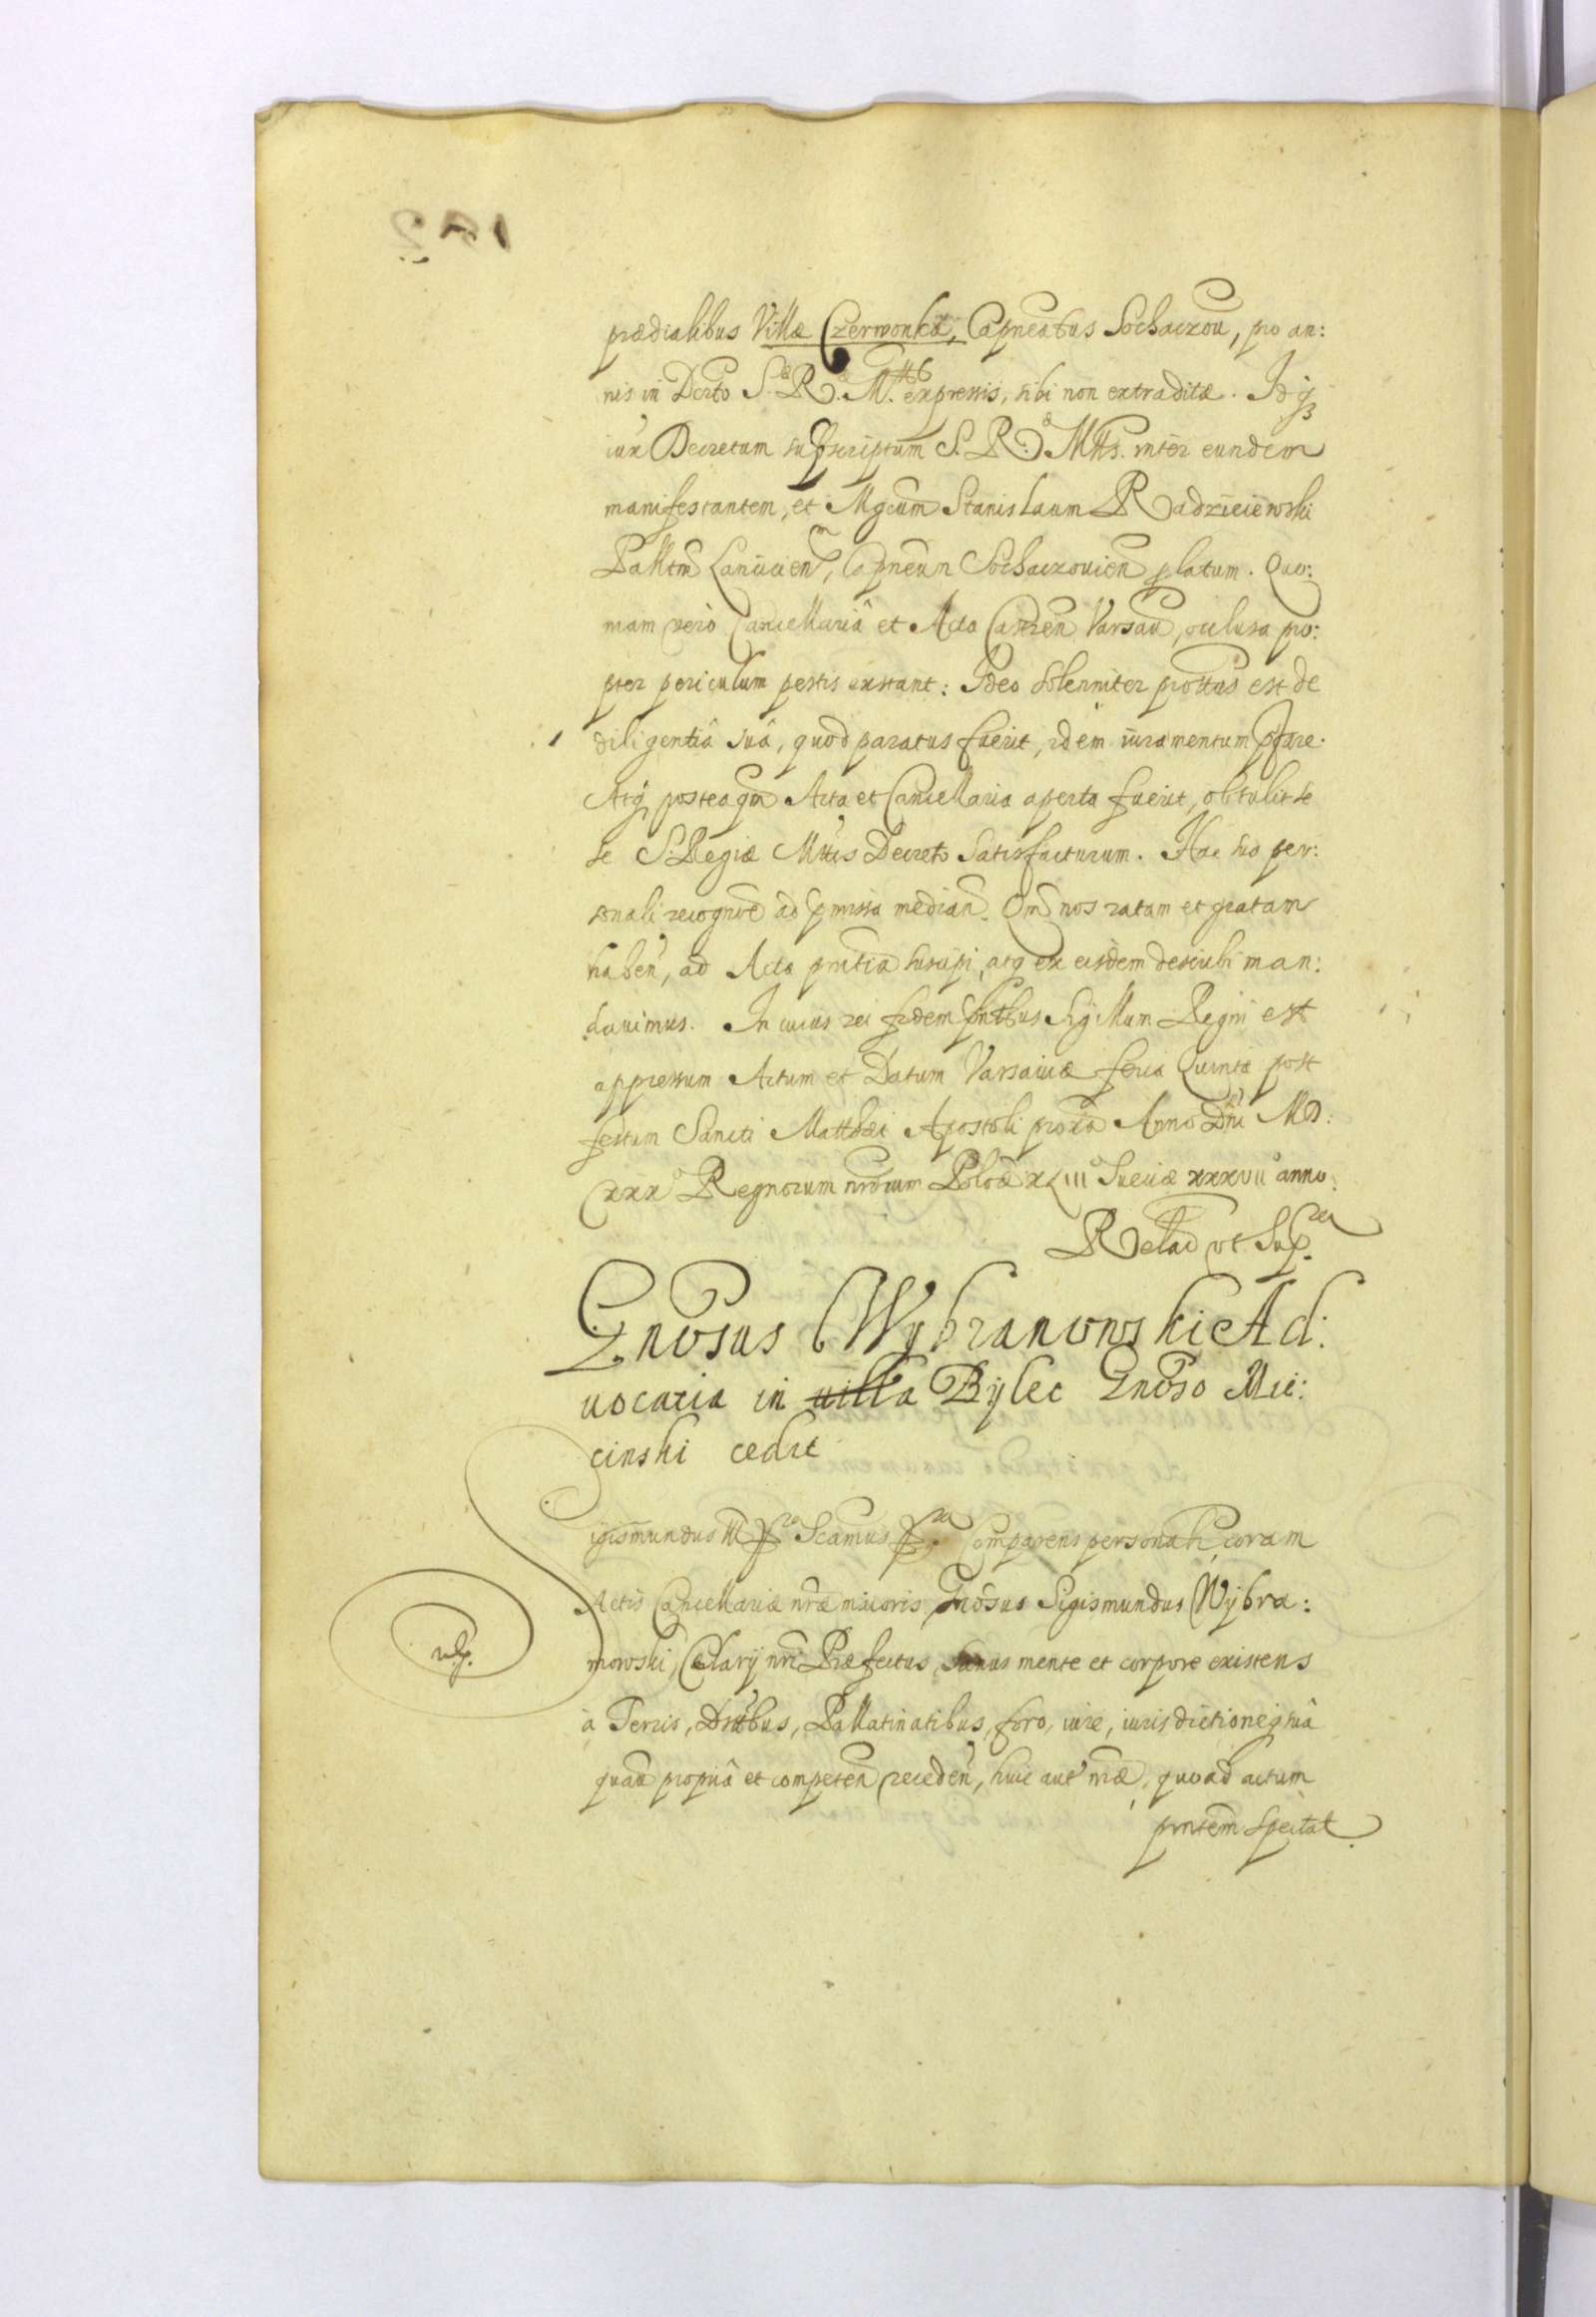 prædialibus Villæ Czerwonka, Capneatus Sochaczou, pro an:
nis in Decto S. R. M. expressis, sibi non extraditæ. Idq
iux Decretum suscriptum S. R. Mttis. inter eundem
manifestantem, et Mgcum Stanislaum Radzieiewski
Palltm Lancicien, Capneum Sochaczouien latum. Quo:
niam vero Cancellaria et Acta Castren Varsau, occlusa pro:
pter periculum pestis exstant: Ideo solenniter prottus est de
diligentiâ suâ, quod paratus fuerit, idem iuramentum
Atq posteaqm Acta et Cancellaria aperta fuerit, obtulit se
se S. Regiæ Mttis Decreto satisfacturum. Hac sua per:
sonali recogne ad præmissa median. Qm nos ratam et gratam
haben, ad Acta pntia suscipi, atq ex eisdem describi man:
dauimus. In cuius rei fidem pntbus Sigillum Regni est
appressum Actum et Datum Varsauiæ feria Quinta post
festum Sancti Matthæi Apostoli proxa Anno Dni MD:
Cxxx Regnorum nrorum Polo XLIII Sueciæ xxxvii anno.
Relao vt Supra
Gnosus Wybranowski Ad:
uocatia in villa Bylec Gnoso Mie:
cinski cedit
Sigismundus III Scamus Comparens personati coram
Actis Cancellariæ nræ minoris Gnosus Sigismundus Wybra:
nowski, Cellarij nri Præfectus, sanus mente et corpore existens
à Terris, Dsttbus, Pallatinatibus, foro, iure, iurisdictioneq suâ
quauis propriâ et competen receden, huic aut nræ, quoad actum
pntem spectat